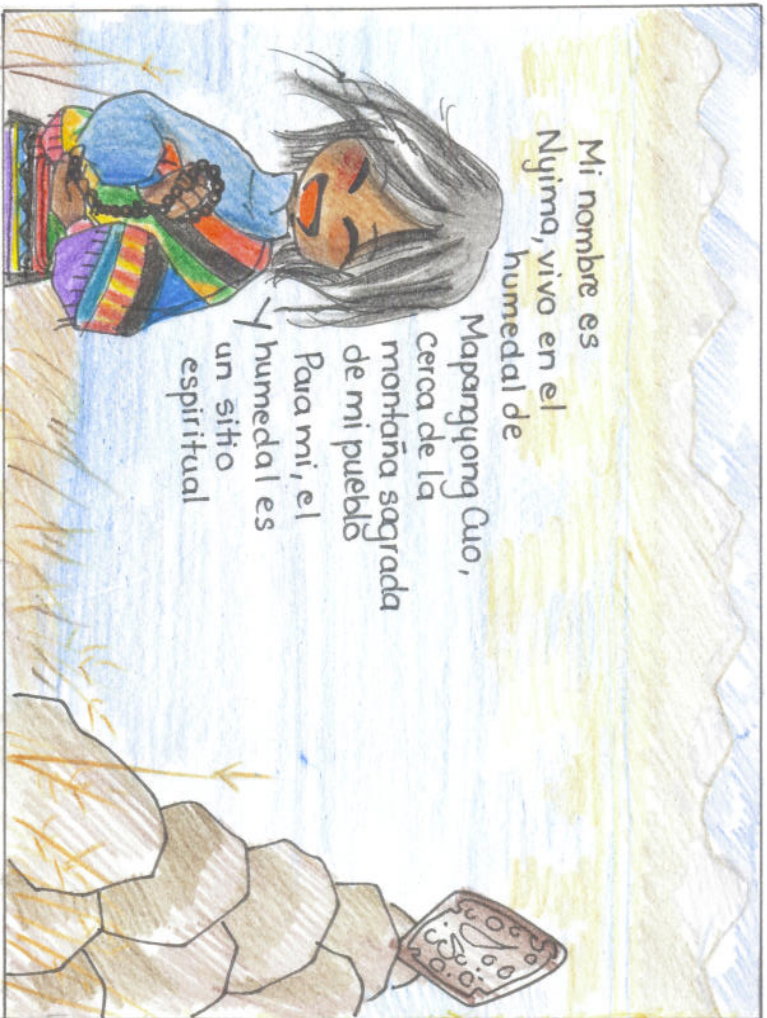 Mi nombre es
Nyima, vivo en el
humedal de
Mapangyong Cuo,
cerca de la
montaña sagrada
de mi pueblo
Para mi, el
humedal es
un sitio
espiritual